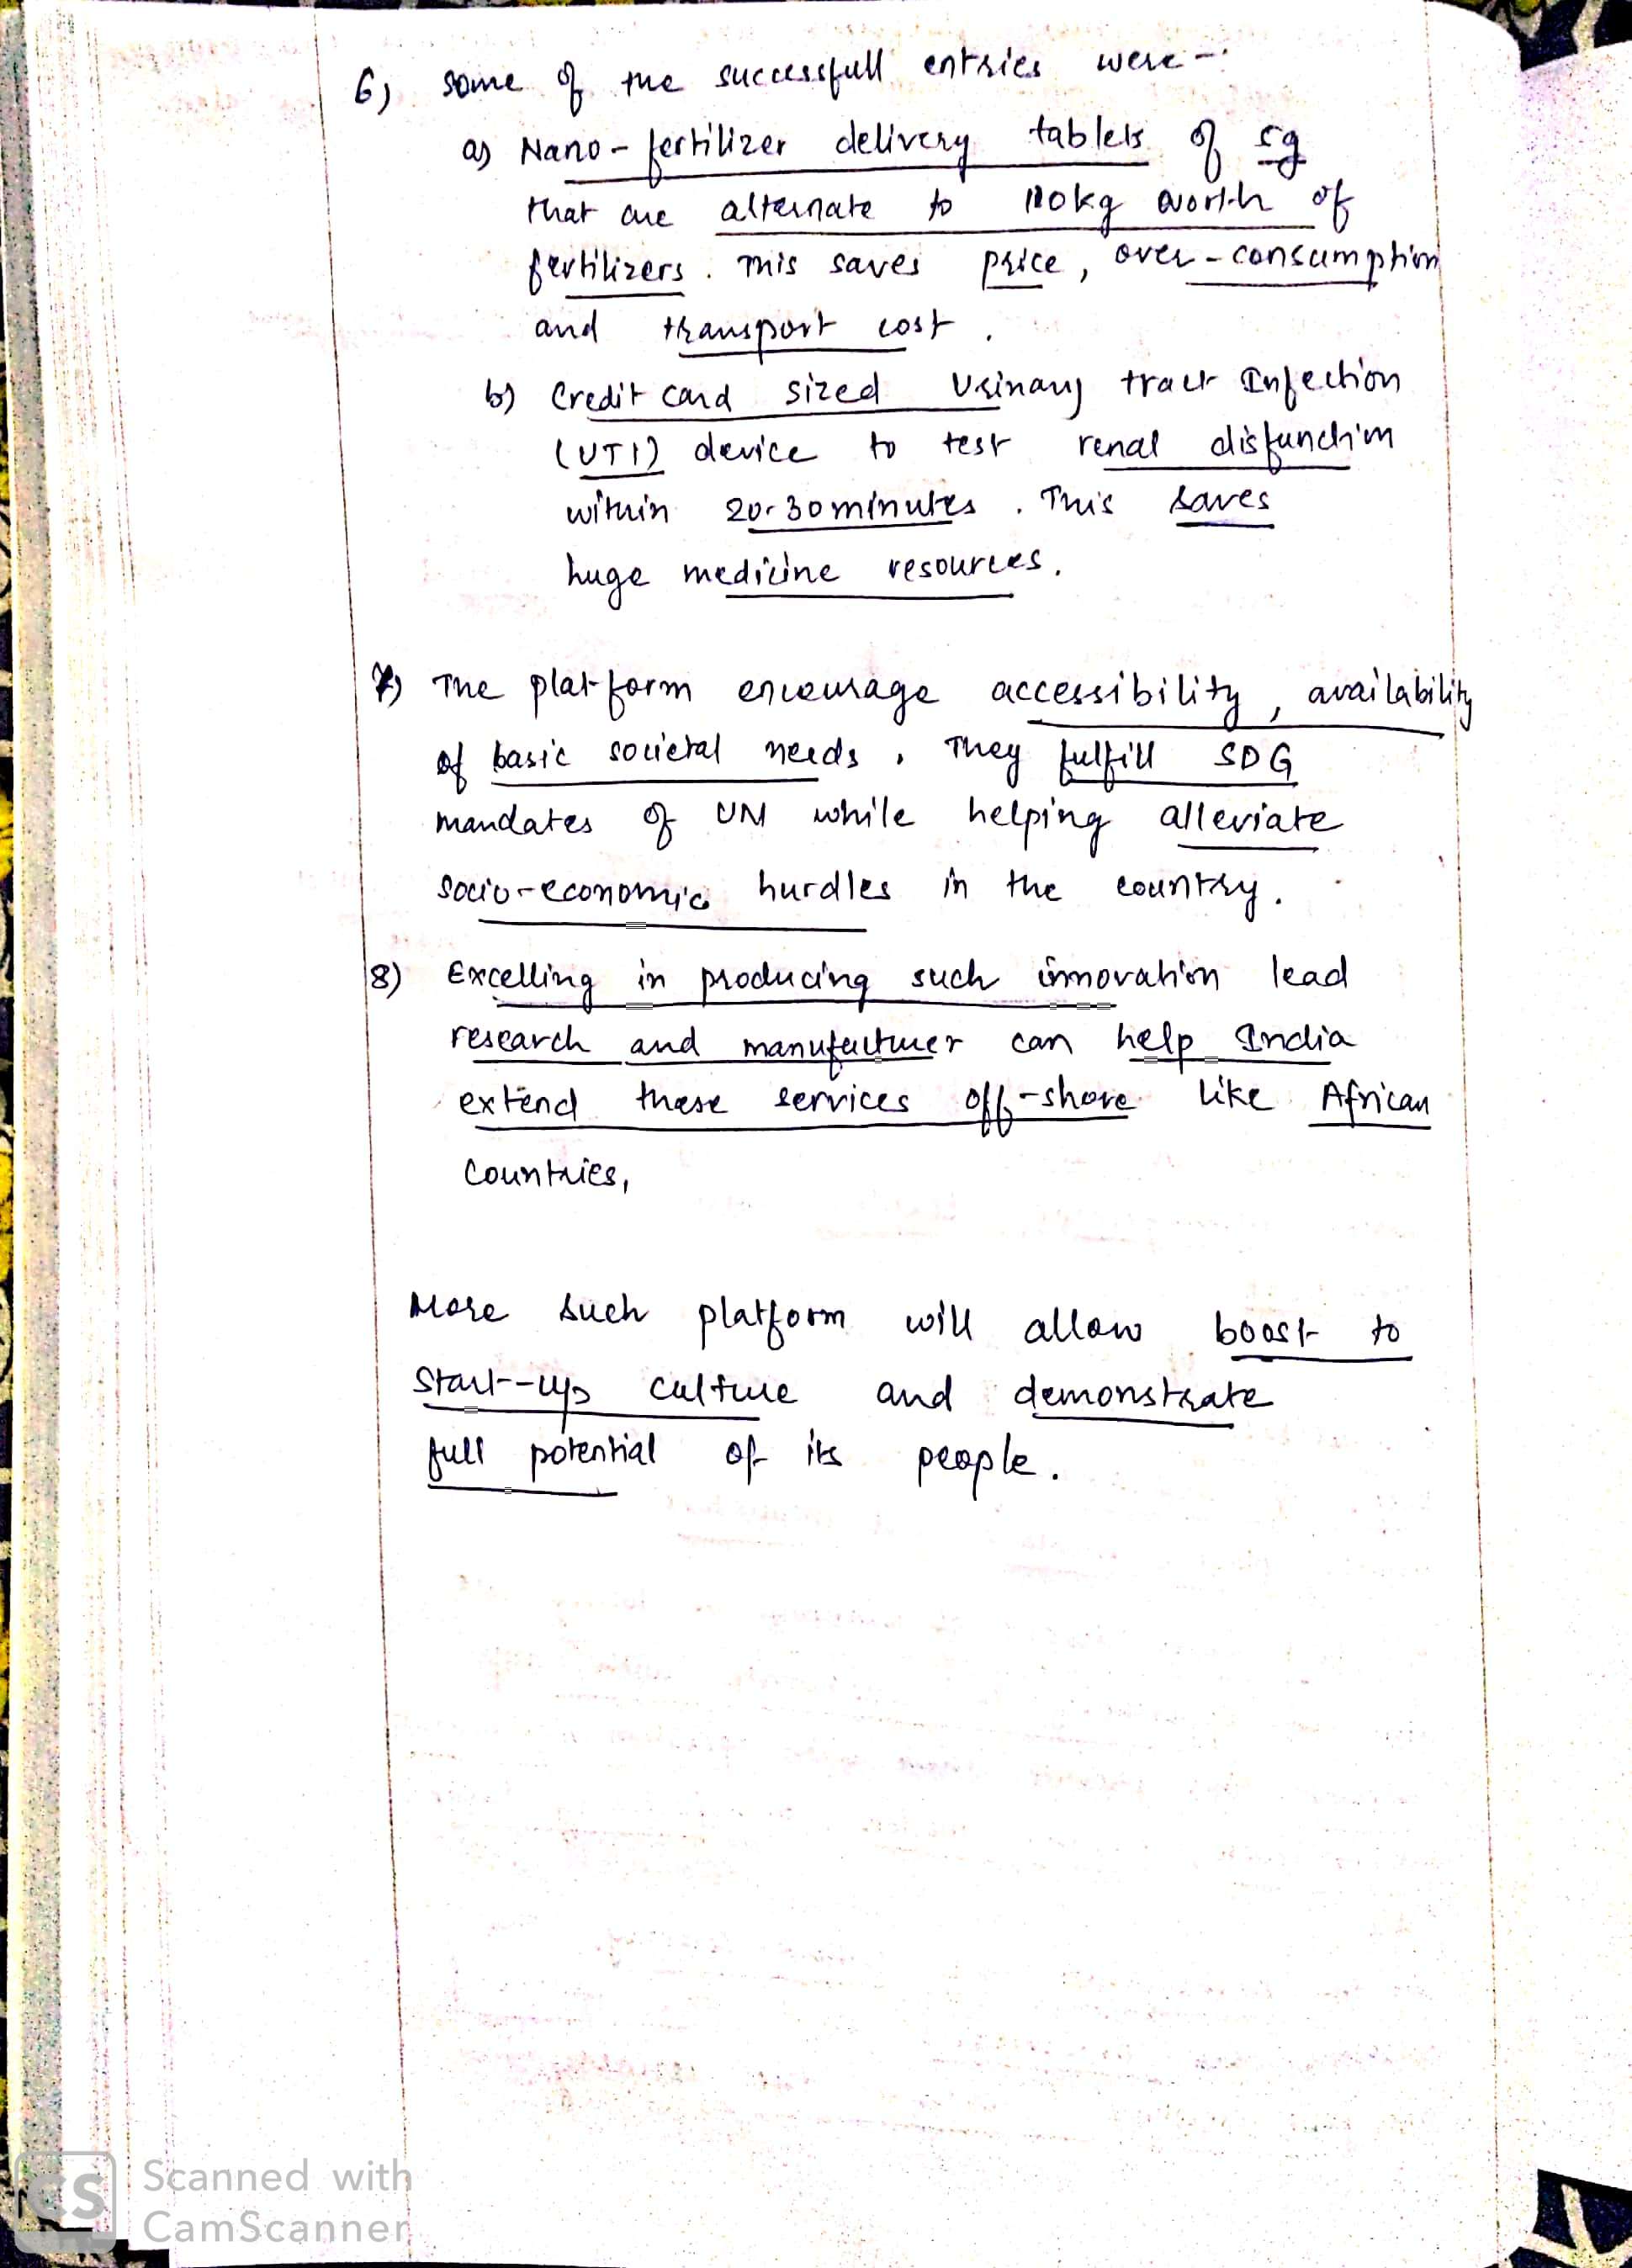 6) Some of the successfull entries were -
a) Nano-fertilizer delivery tablets of 5g
that are alternate to 110kg worth of
fertilizers. This saves price, over-consumption
and transport cost.
b) Credit card sized Urinary tract Infection
(UTI) device to test renal disfunction
within 20-30 minutes. This saves
huge medicine resources.
7) The platform encourage accessibility, availability
of basic societal needs. They fulfill SDG
mandates of UN while helping alleviate
socio-economic hurdles in the country.
8) Excelling in producing such innovation lead
research and manufacturer can help India
extend these services off-shore like African
Countries,
More such platform will allow boost to
Start-up culture and demonstrate
full potential of its people.
CS Scanned with
CamScanner